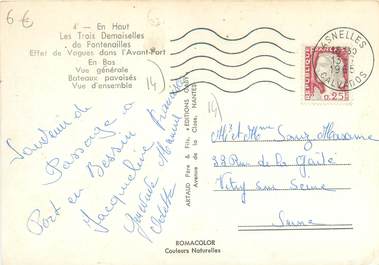 6 €
4 — En Haut
Les Trois Demoiselles
de Fontenailles
Effet de Vagues dans l'Avant-Port
En Bas
Vue générale
Bateaux pavoisés
Vue d'ensemble
14
Souvenir de
Passage à
Port en Bessin
Jacqueline Francis
Gustave Manuel
Odette
ARTAUD Père & Fils • EDITIONS GABY
Avenue de la Close, NANTES
14
ASNELLES
CALVADOS
0,25
Mr et Mme
38 Rue de la Gaîté
Vitry sur Seine
Seine
ROMACOLOR
Couleurs Naturelles